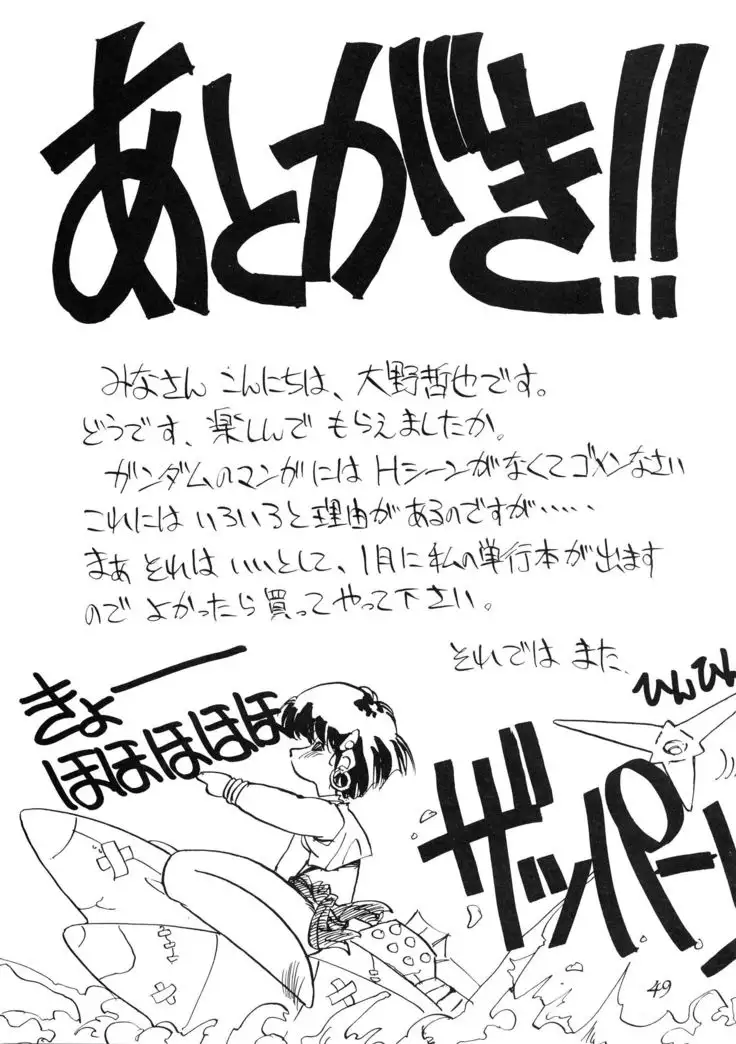 あとがき!!
みなさん こんにちは、大野哲也です。
どうです、楽しんで もらえましたか。
ガンダムのマンガには Hシーンがなくてゴメンなさい
これには いろいろと理由があるのですが‥‥‥
まぁ それは いいとして、1月に私の単行本が出ます
ので よかったら買ってやって下さい。
それでは また、
ひんひん
きょー
ほほほほほ
ザッパーン
49